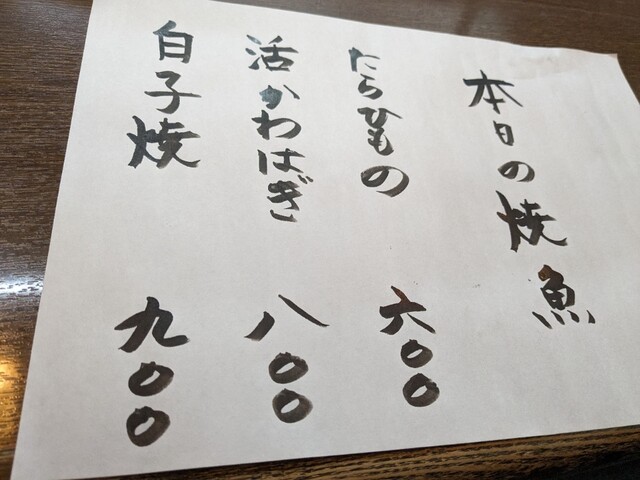 本日の焼魚
たらひもの 六〇〇
活かわはぎ 八〇〇
白子焼 九〇〇